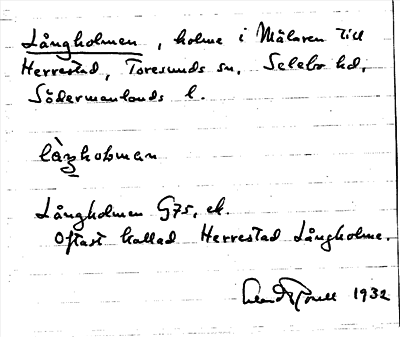 Långholmen, holme i Mälaren till
Herrestad, Toresunds sn, Selebo hd,
Södermanlands l.
Långholmen G75, ek.
Oftast kallad Herrestad Långholme.
1932